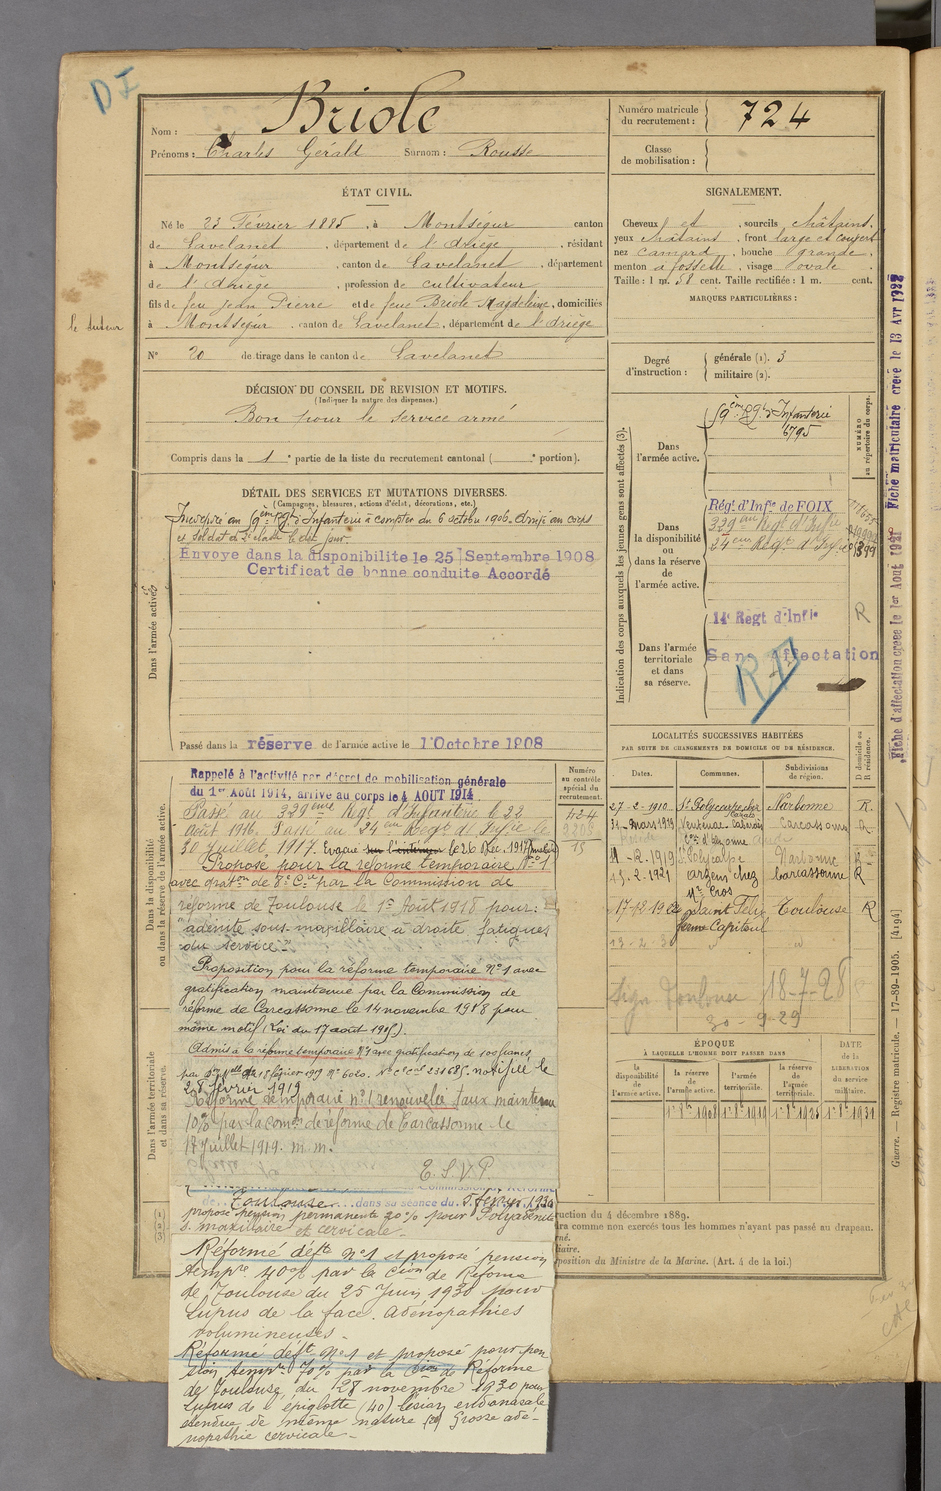 D I
Nom : Briole
Prénoms : Charles Gérald Surnom : Rousse
Numéro matricule
du recrutement : 724
Classe
de mobilisation :
ÉTAT CIVIL.
Né le 23 Février 1885, à Montségur canton
de Lavelanet, département de l'Ariège, résidant
à Montségur, canton de Lavelanet, département
de l'Ariège, profession de cultivateur
fils de feu Jean Pierre et de feue Briole Magdeleine, domiciliés
à Montségur, canton de Lavelanet, département de l'Ariège
le tuteur
N° 20 de tirage dans le canton de Lavelanet
SIGNALEMENT.
Cheveux et, sourcils châtains,
yeux châtains, front large et couvert
nez camard, bouche grande,
menton à fossette, visage ovale.
Taille : 1 m. 58 cent. Taille rectifiée : 1 m. cent.
MARQUES PARTICULIÈRES :
Degré
d'instruction :
générale (1). 3
militaire (2).
DÉCISION DU CONSEIL DE REVISION ET MOTIFS.
(Indiquer la nature des dispenses.)
Bon pour le service armé
Compris dans la 1e partie de la liste du recrutement cantonal ( e portion).
DÉTAIL DES SERVICES ET MUTATIONS DIVERSES.
(Campagnes, blessures, actions d'éclat, décorations, etc.)
Incorporé au 59ème Rgt d'Infanterie à compter du 6 octobre 1906. Arrivé au corps
et soldat de 2e classe le dit jour.
Envoyé dans la disponibilité le 25 Septembre 1908
Certificat de bonne conduite Accordé
Dans l'armée active.
Passé dans la réserve de l'armée active le 1 Octobre 1908
Indication des corps auxquels les jeunes gens sont affectés (3).
NUMÉRO
au répertoire du corps.
Dans
l'armée active.
59ème Rgt d'Infanterie
6795
Dans
la disponibilité
ou
dans la réserve
de
l'armée active.
Régt d'Infie de FOIX
329eme Régt d'Infie
24eme Régt d'Infie
Dans l'armée
territoriale
et dans
sa réserve.
14e Regt d'Infie
R
Sans affectation
Fiche d'affectation créée le 1er Août 1927
Fiche matriculaire créée le 13 Avr 1922
Guerre. — Registre matricule. — 17-89-1905. [4194]
Dans la disponibilité
ou dans la réserve de l'armée active.
Dans l'armée territoriale
et dans sa réserve.
Numéro
au contrôle
spécial du
recrutement.
Rappelé à l'activité par décret de mobilisation générale
du 1er Août 1914, arrivé au corps le 4 AOUT 1914
Passé au 329ème Régt d'Infanterie le 22
août 1916. Passé au 24eme Régt d'Infie le
30 juillet 1917. Evacué sur l'intérieur le 26 Déc. 1917 (malade)
Proposé pour la réforme temporaire N° 1
avec graton de 8e Cie par la Commission de
réforme de Toulouse le 1er Août 1918 pour :
"adénite sous-maxillaire à droite fatigues
du service"
Proposition pour la réforme temporaire N° 1 avec
gratification maintenue par la Commission de
réforme de Carcassonne le 14 novembre 1918 pour
même motif (Loi du 17 août 1915).
Admis à la réforme temporaire N° 1 avec gratification de 100 francs
notifiée le
28 février 1919
Réforme temporaire n° 1 renouvelée taux maintenu
10% par la comon de réforme de Carcassonne le
17 Juillet 1919. m. m.
T. S. V. P.
Commission de Réforme
de Toulouse dans sa séance du
proposé pension permanente 20% pour Polyadénite
s. maxillaire et cervicale
Réformé défte N°1 et proposé pension
tempre 40% par la Cion de Réforme
de Toulouse du 25 Juin 1930 pour
Lupus de la face. Adénopathies
volumineuses.
Réformé défte N°1 et proposé pour pen
sion tempre 70% par la Cion de Réforme
de Toulouse, du 28 novembre 1930 pour
Lupus de l'épiglotte (40) lésion endonasale
étendue de même nature (20) Grosse adé-
nopathie cervicale.
LOCALITÉS SUCCESSIVES HABITÉES
PAR SUITE DE CHANGEMENTS DE DOMICILE OU DE RÉSIDENCE.
Dates. Communes. Subdivisions
de région.
D domicile ou
R résidence.
27-2-1910 St Polycarpe Narbonne R
31-mars 1913 Ventenac-Cabardès Carcassonne R
11-2-1919 St Polycarpe Narbonne R
15-2-1921 Argens chez Carcassonne R
Mr Cros
17-12-1922 Saint Félix Toulouse R
ferme Capitoul
Sign. Toulouse 18-7-28
30-9-29
ÉPOQUE
À LAQUELLE L'HOMME DOIT PASSER DANS
la
disponibilité
de
l'armée active.
la réserve
de
l'armée active.
l'armée
territoriale.
la réserve
de
l'armée
territoriale.
DATE
de la
LIBÉRATION
du service
militaire.
1er 8bre 1908 1er 8bre 1919 1er 8bre 1925 1er 8bre 1931
uction du 4 décembre 1889.
ra comme non exercés tous les hommes n'ayant pas passé au drapeau.
position du Ministre de la Marine. (Art. 4 de la loi.)